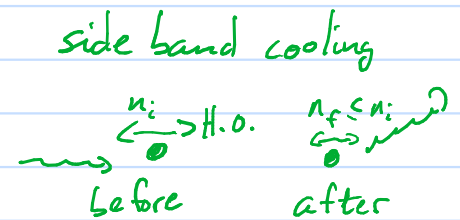 side band cooling
n_i n_f < n_i
H.O.
before after